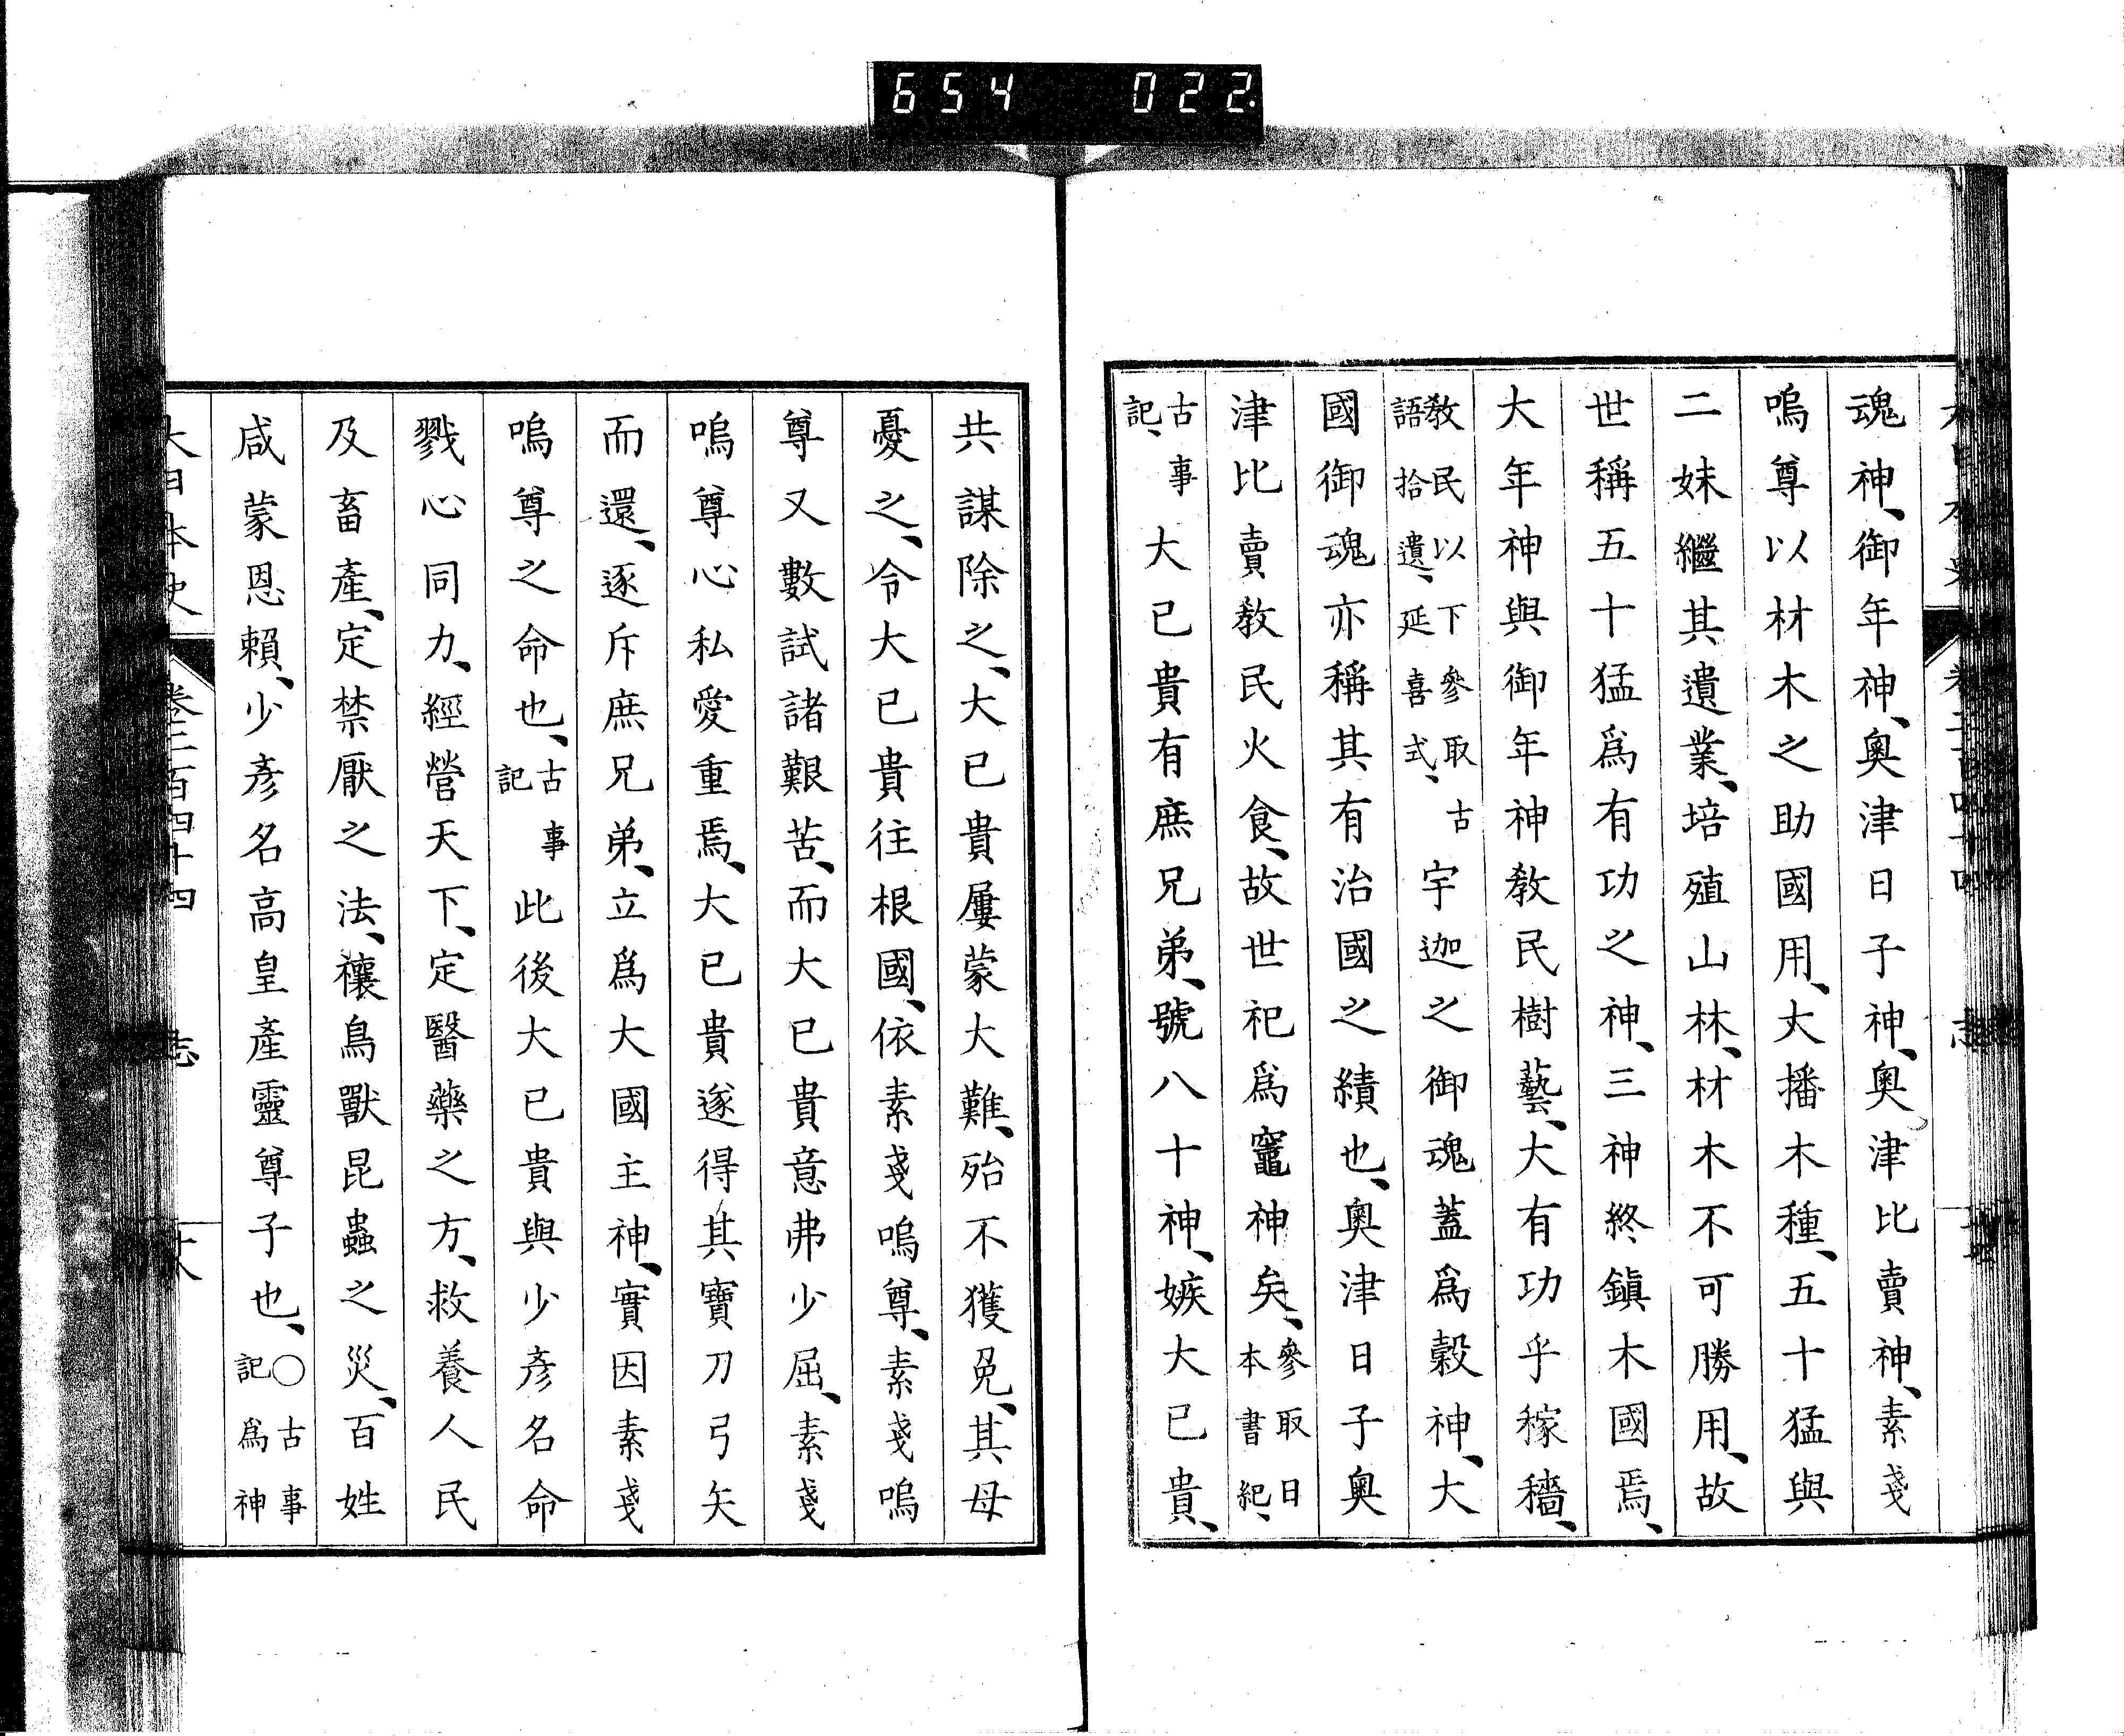 654 022.
魂神、御年神、奧津日子神、奧津比賣神、素戔
嗚尊以材木之助國用、大播木種、五十猛與
二妹繼其遺業、培殖山林、材木不可勝用、故
世稱五十猛爲有功之神、三神終鎭木國焉、
大年神與御年神敎民樹藝、大有功乎稼穡、
敎民以下參取古
語拾遺、延喜式、宇迦之御魂蓋爲穀神、大
國御魂亦稱其有治國之績也、奧津日子奧
津比賣敎民火食、故世祀爲竈神矣、參取日
本書紀、
古事
記、大已貴有庶兄弟、號八十神、嫉大已貴、
共謀除之、大已貴屢蒙大難、殆不獲免、其母
憂之、令大已貴往根國、依素戔嗚尊、素戔嗚
尊又數試諸艱苦、而大已貴意弗少屈、素戔
嗚尊心私愛重焉、大已貴遂得其寶刀弓矢
而還、逐斥庶兄弟、立爲大國主神、實因素戔
嗚尊之命也、古事
記此後大已貴與少彥名命
戮心同力、經營天下、定醫藥之方、救養人民
及畜產、定禁厭之法、禳鳥獸昆蟲之災、百姓
咸蒙恩賴、少彥名高皇產靈尊子也、○古事
記爲神
大日本史 卷二百四十四 志